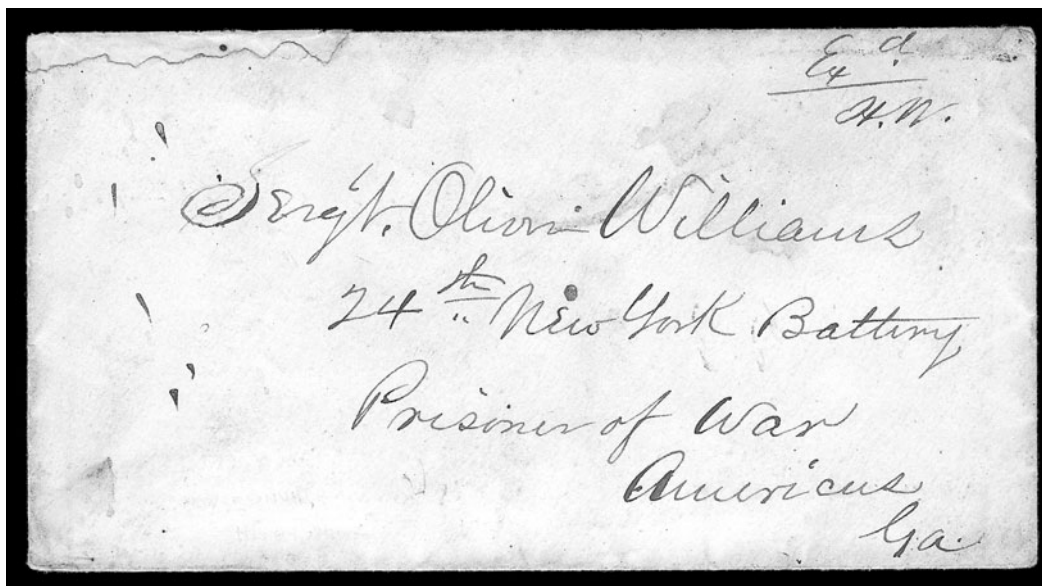 Exd
H.W.
Serg't. Oliver Williams
24th New York Battery
Prisoner of War
Americus
Ga.